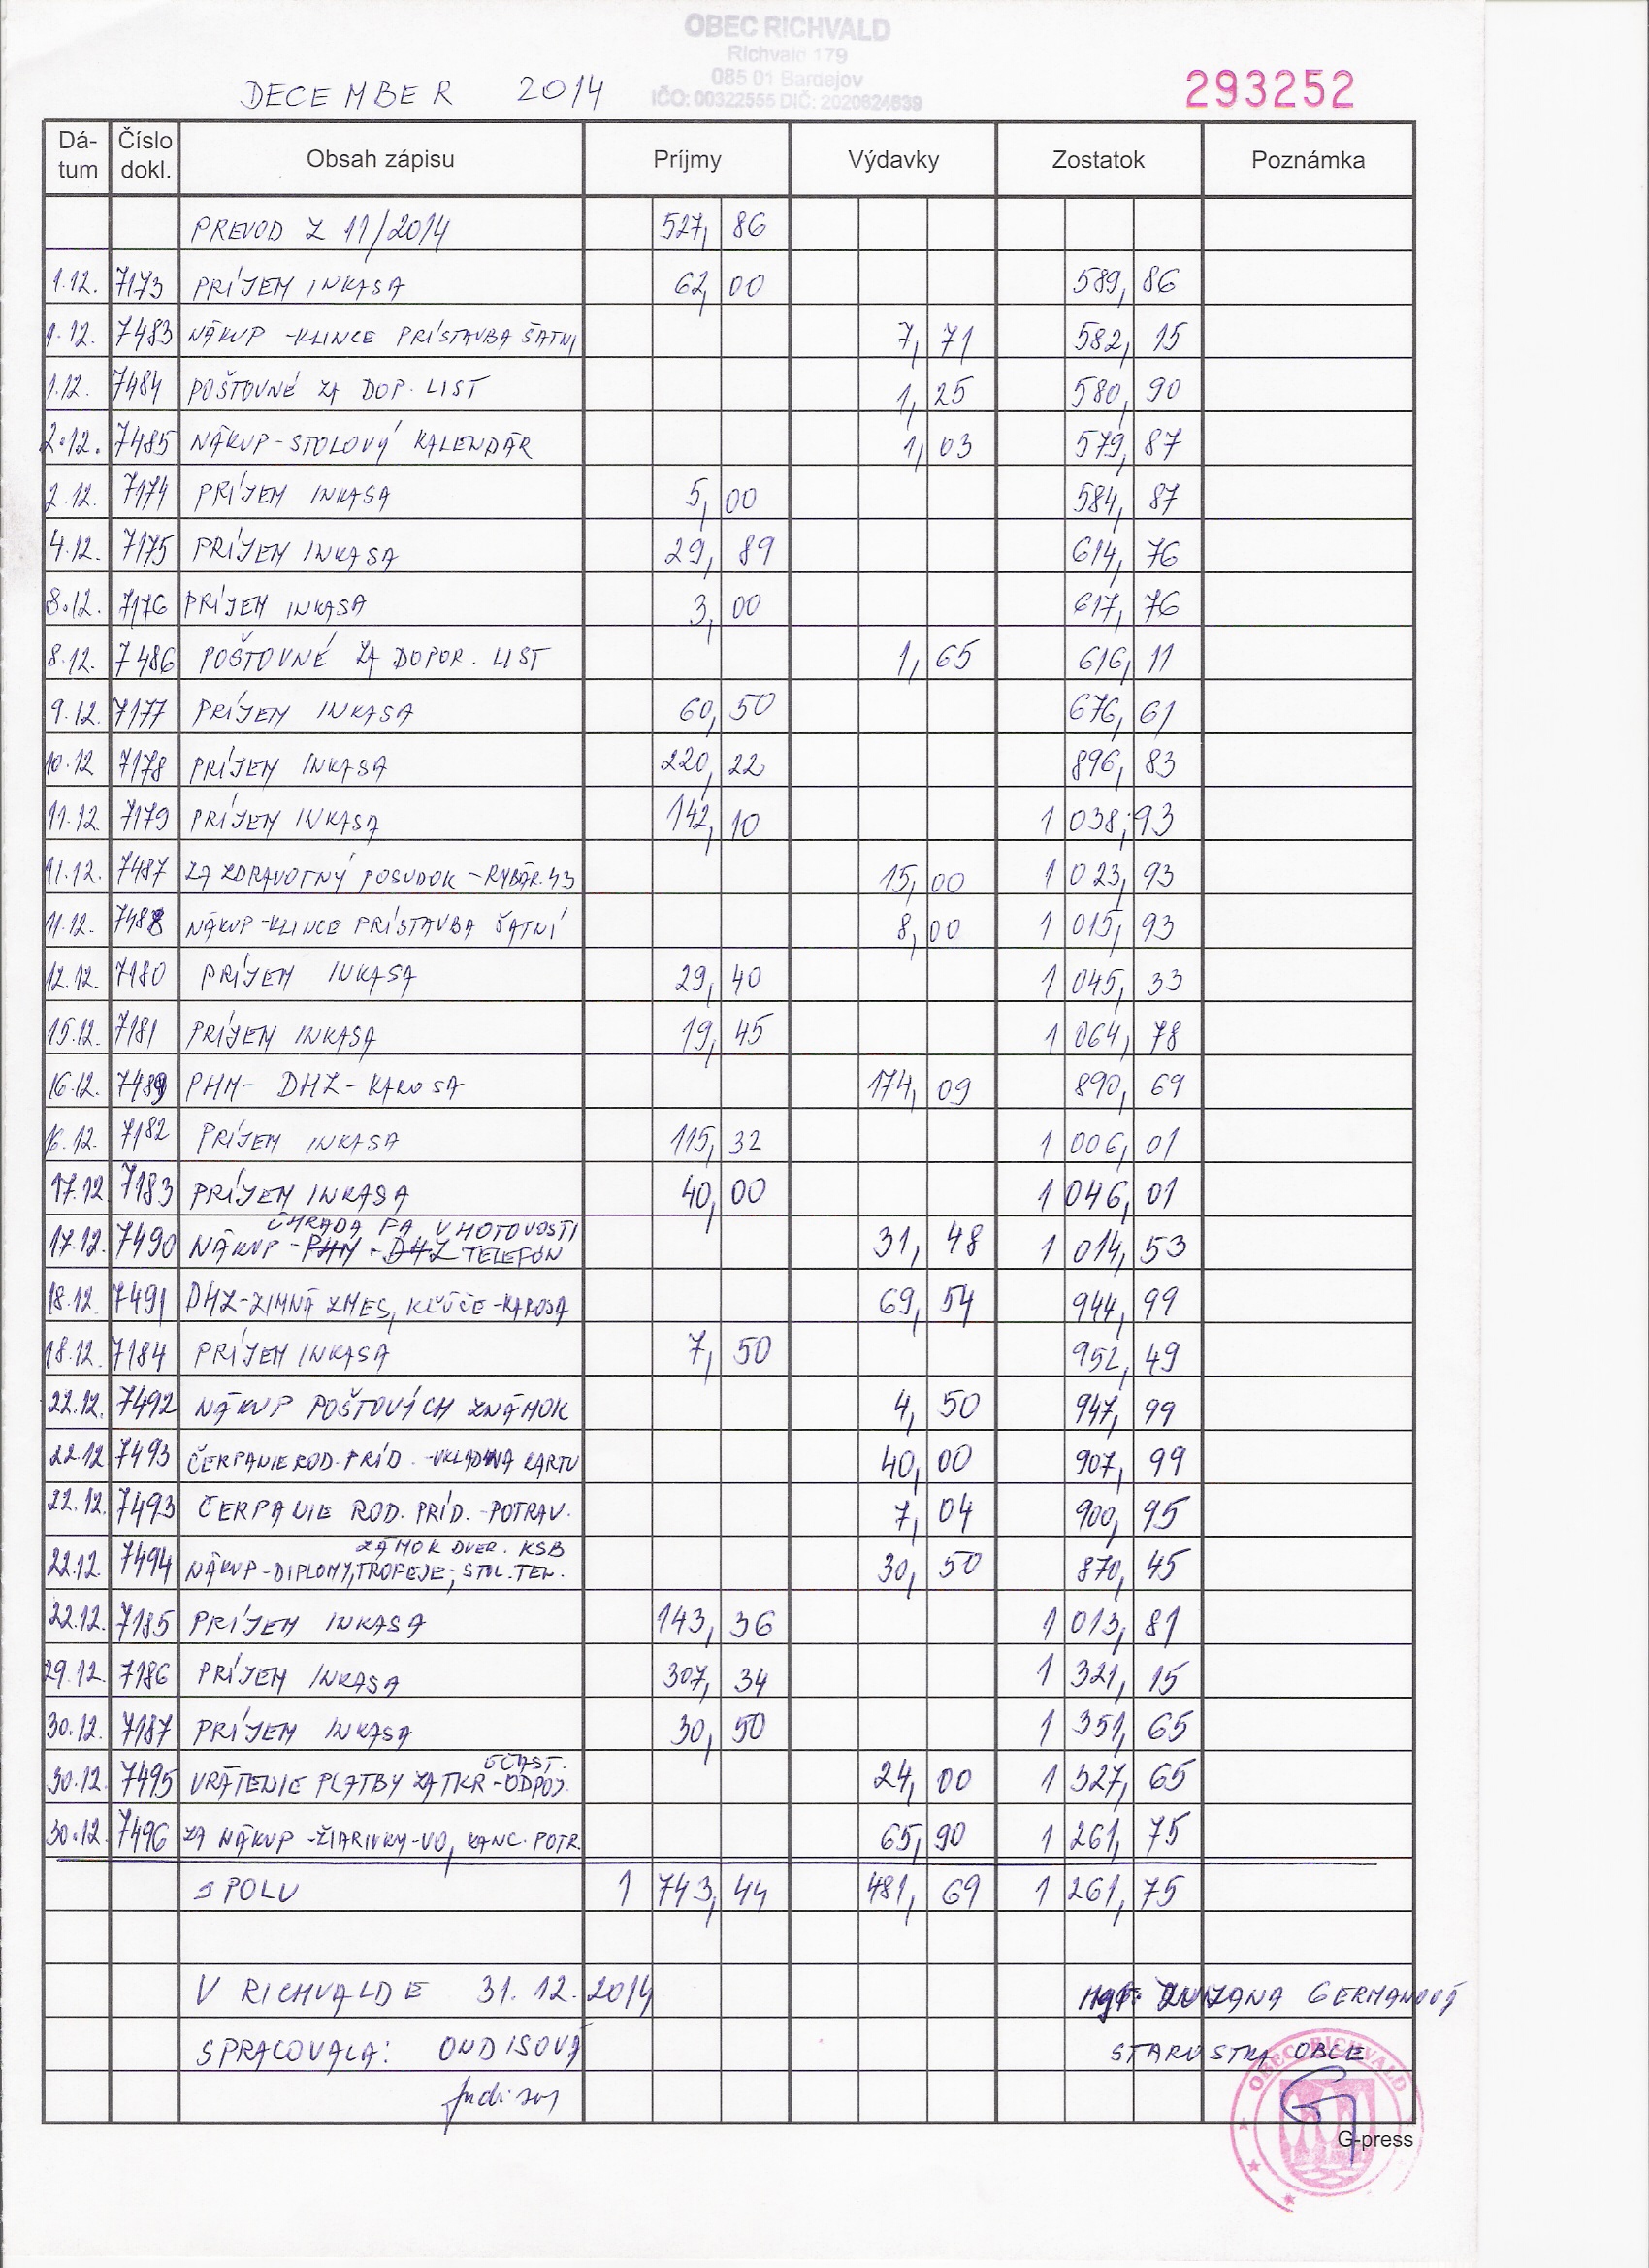 OBEC RICHVALD
Richvald 179
085 01 Bardejov
IČO: 00322555 DIČ: 2020624639
DECEMBER 2014 293252
Dá-tum Číslo dokl. Obsah zápisu Príjmy Výdavky Zostatok Poznámka
PREVOD Z 11/2014 527, 86
1.12. 7173 PRÍJEM INKASA 62, 00 589, 86
1.12. 7483 NÁKUP -KLINCE PRÍSTAVBA ŠATNI 7, 71 582, 15
1.12. 7484 POŠTOVNÉ ZA DOP. LIST 1, 25 580, 90
2.12. 7485 NÁKUP-STOLOVÝ KALENDÁR 1, 03 579, 87
2.12. 7174 PRÍJEM INKASA 5, 00 584, 87
4.12. 7175 PRÍJEM INKASA 29, 89 614, 76
8.12. 7176 PRÍJEM INKASA 3, 00 617, 76
8.12. 7486 POŠTOVNÉ ZA DOPOR. LIST 1, 65 616, 11
9.12. 7177 PRÍJEM INKASA 60, 50 676, 61
10.12 7178 PRÍJEM INKASA 220, 22 896, 83
11.12. 7179 PRÍJEM INKASA 142, 10 1 038, 93
11.12. 7487 ZA ZDRAVOTNÝ POSUDOK - 15, 00 1 023, 93
11.12. 7488 NÁKUP-KLINCE PRÍSTAVBA ŠATNÍ 8, 00 1 015, 93
12.12. 7180 PRÍJEM INKASA 29, 40 1 045, 33
15.12. 7181 PRÍJEM INKASA 19, 45 1 064, 78
16.12. 7489 PHM- DHZ-KAROSA 174, 09 890, 69
16.12. 7182 PRÍJEM INKASA 115, 32 1 006, 01
17.12 7183 PRÍJEM INKASA 40, 00 1 046, 01
ÚHRADA FA V HOTOVOSTI
17.12. 7490 NÁKUP - PHM - DHZ TELEFÓN 31, 48 1 014, 53
18.12. 7491 DHZ-ZIMNÁ ZMES, KĽÚČE-KAROSA 69, 54 944, 99
18.12. 7184 PRÍJEM INKASA 7, 50 952, 49
22.12. 7492 NÁKUP POŠTOVÝCH ZNÁMOK 4, 50 947, 99
22.12 7493 ČERPANIE ROD. PRÍD. -VKLAD NA KARTU 40, 00 907, 99
22.12. 7493 ČERPANIE ROD. PRÍD. -POTRAV. 7, 04 900, 95
ZÁMOK DVER. KSB
22.12. 7494 NÁKUP-DIPLOMY, TROFEJE, STOL.TEN. 30, 50 870, 45
22.12. 7185 PRÍJEM INKASA 143, 36 1 013, 81
29.12. 7186 PRÍJEM INKASA 307, 34 1 321, 15
30.12. 7187 PRÍJEM INKASA 30, 50 1 351, 65
ÚČAST.
30.12. 7495 VRÁTENIE PLATBY ZA TKR-ODPOJ. 24, 00 1 327, 65
30.12. 7496 ZA NÁKUP -ŽIARIVKY-VO, KANC. POTR. 65, 90 1 261, 75
SPOLU 1 743, 44 481, 69 1 261, 75
V RICHVALDE 31.12.2014 Mgr. ZUZANA GERMANOVÁ
SPRACOVALA: ONDISOVÁ STAROSTKA OBCE
OBEC RICHVALD
G-press